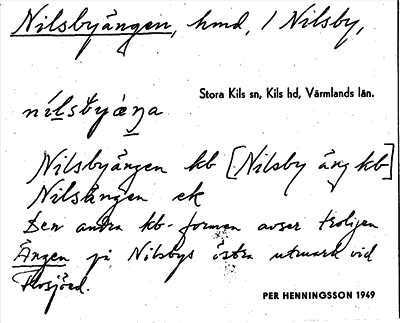 Nilsbyängen, hmd, / Nilsby,
Stora Kils sn, Kils hd, Värmlands län.
Nilsbyängen kb [Nilsby äng kb]
Nilsängen ek
Den andra kb-formen avser troligen
Ängen på Nilsbys östra utmark vid
PER HENNINGSSON 1949